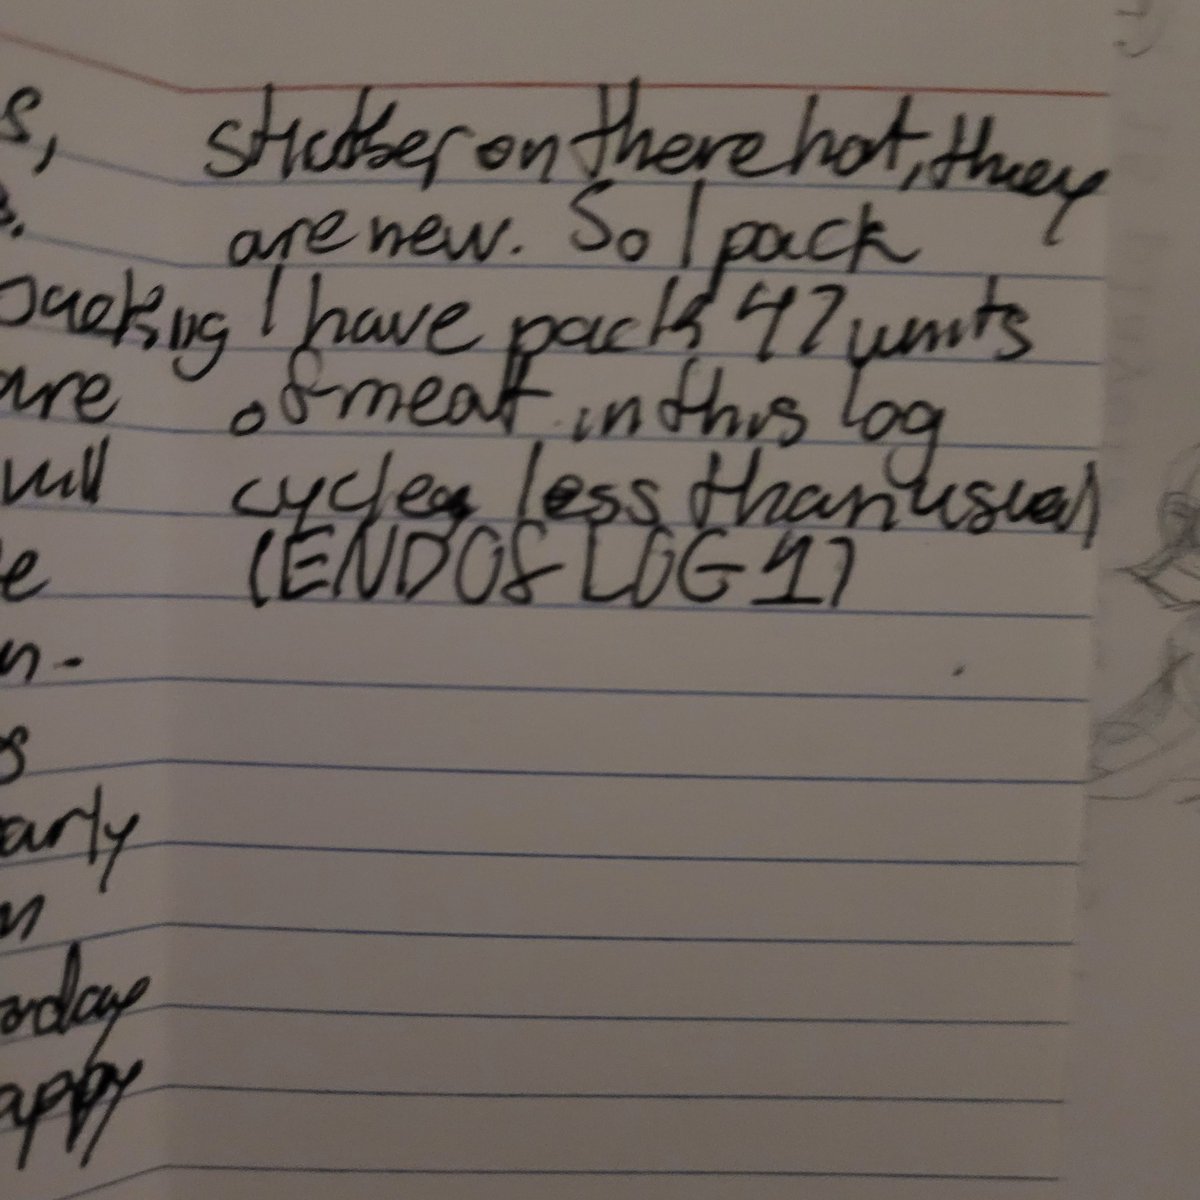 s,
arly
are
will
e
n-
s
n
oday
appy
sticker on there hat, they
are new. So I pack
I have pack 47 units
of meat in this log
cycles less than usual
(END OF LOG 1)